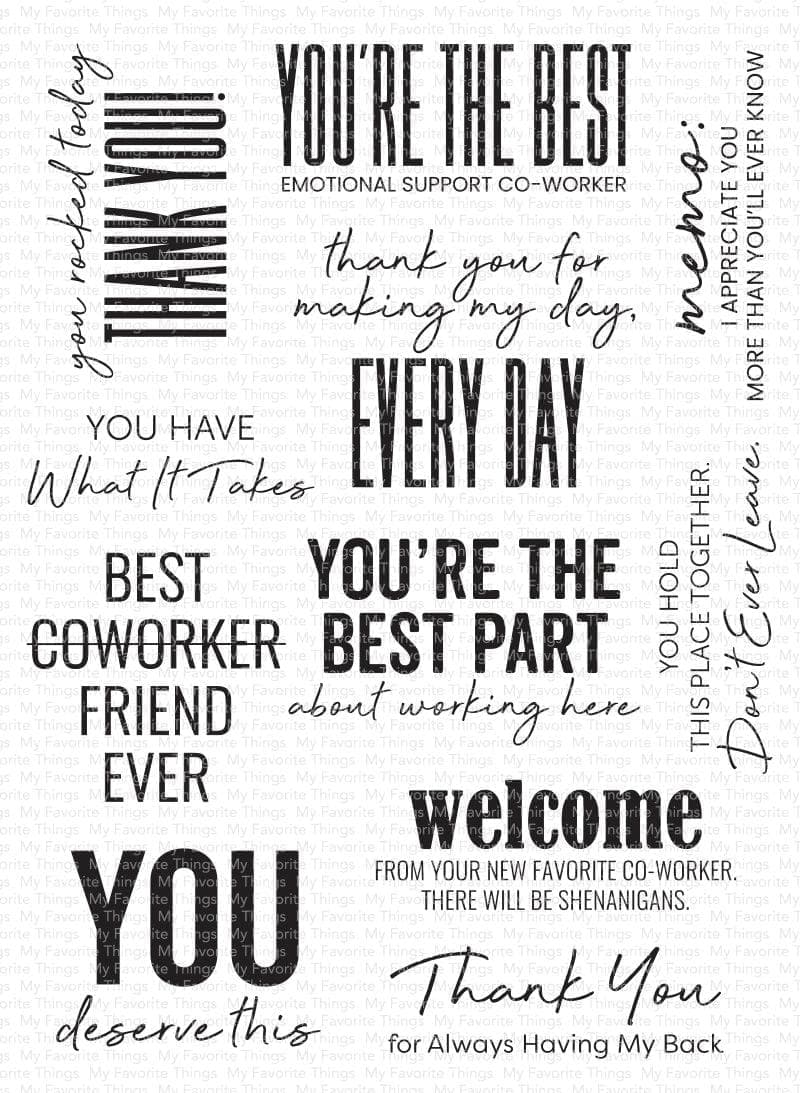 you rocked today
THANK YOU!
YOU'RE THE BEST
EMOTIONAL SUPPORT CO-WORKER
memo:
I APPRECIATE YOU
MORE THAN YOU'LL EVER KNOW
thank you for
making my day,
EVERY DAY
YOU HAVE
What It Takes
YOU HOLD
THIS PLACE TOGETHER.
Don't Ever Leave.
BEST
COWORKER
FRIEND
EVER
YOU'RE THE
BEST PART
about working here
welcome
FROM YOUR NEW FAVORITE CO-WORKER.
THERE WILL BE SHENANIGANS.
YOU
deserve this
Thank You
for Always Having My Back
My Favorite Things